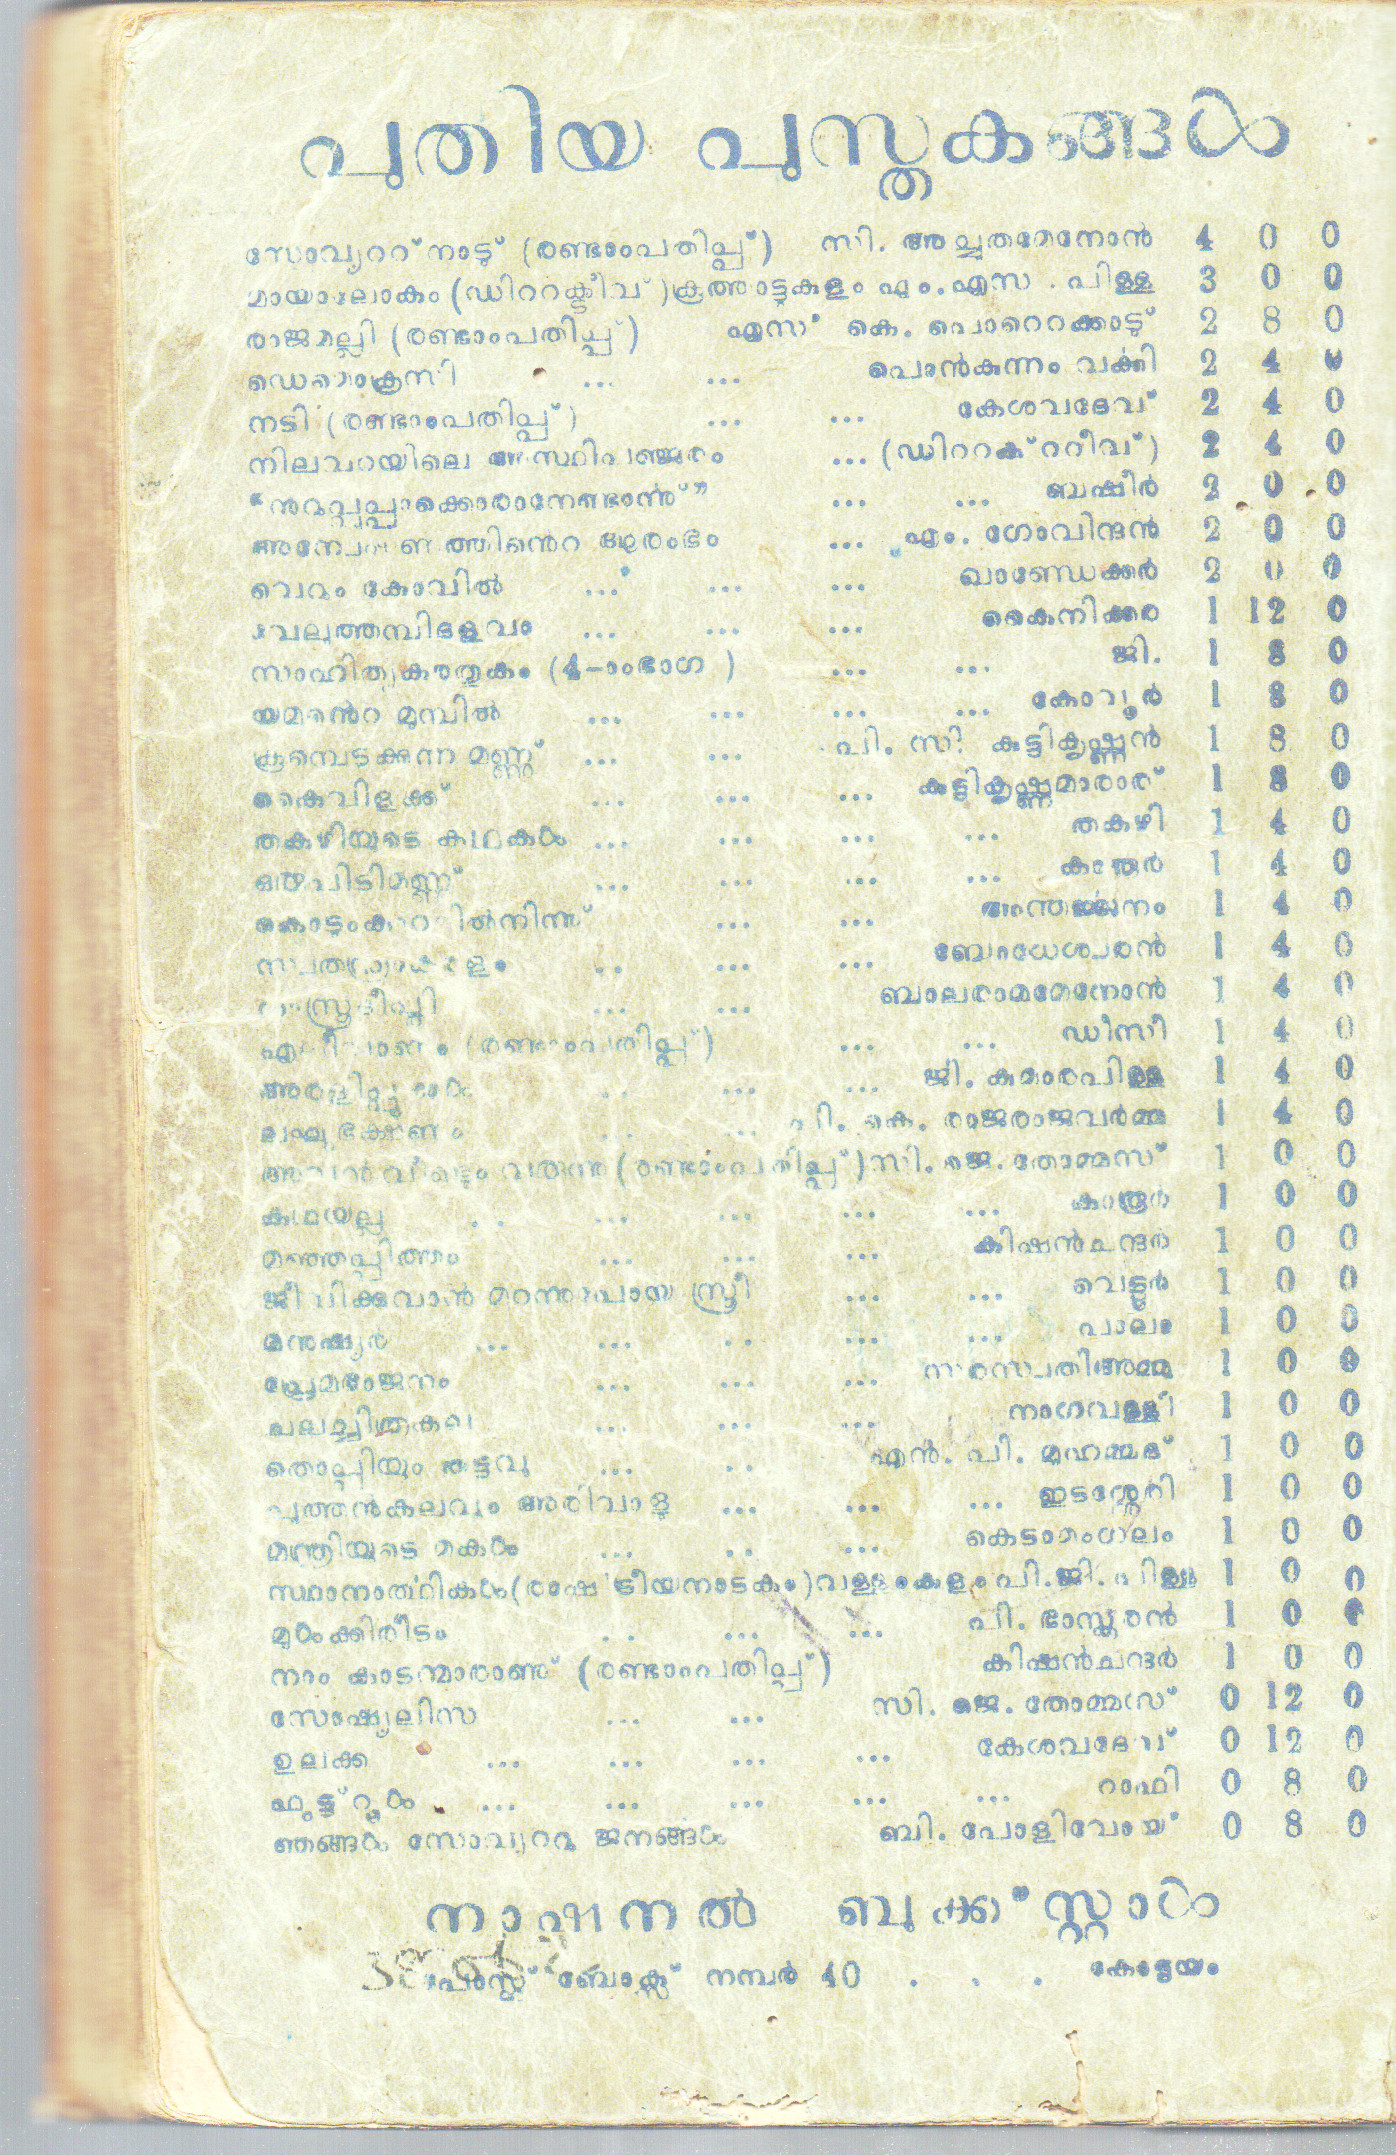 പുതിയ പുസ്തകങ്ങൾ
സോവ്യററ് നാട്ട് (രണ്ടാംപതിപ്പ്) സി. അച്യുതമേനോൻ 4 0 0
മായാലോകം (ഡിററക്ടീവ്) കൂത്താട്ടുകുളം എം. എസ. പിള്ള 3 0 0
രാജമല്ലി (രണ്ടാംപതിപ്പ്) എസ് കെ. പൊറെറക്കാട്ട് 2 8 0
ഡെമോക്രസി ... ... പൊൻകുന്നം വക്കി 2 4 0
നടി (രണ്ടാംപതിപ്പ്) ... ... കേശവദേവ് 2 4 0
നിലവറയിലെ അസ്ഥിപഞ്ജരം ... (ഡിററക്ററീവ്) 2 4 0
“ൻറുപ്പുപ്പാക്കൊരാനേണ്ടാർന്ന്” ... ... ബഷീർ 2 0 0
അന്വേഷണത്തിൻെറ ആരംഭം ... എം. ഗോവിന്ദൻ 2 0 0
വെറും കോവിൽ ... ... ... ഖാണ്ഡേക്കർ 2 0 0
വേലുത്തമ്പിദളവാ ... ... ... കൈനിക്കര 1 12 0
സാഹിത്യകൗതുകം (4-ാംഭാഗ ) ... ... ജി. 1 8 0
യമൻെറ മുമ്പിൽ ... ... ... ... കോവൂർ 1 8 0
കൂമ്പെടുക്കുന്ന മണ്ണ് ... ... പി. സി. കുട്ടികൃഷ്ണൻ 1 8 0
കൈവിളക്ക് ... ... ... കുട്ടികൃഷ്ണമാരാര് 1 8 0
തകഴിയുടെ കഥകൾ ... ... ... ... തകഴി 1 4 0
ഒരുപിടിമണ്ണ് ... ... ... ... 1 4 0
കൊടുംകാററിൽനിന്ന് ... ... അന്തർജ്ജനം 1 4 0
... ... ... ബോധേശ്വരൻ 1 4 0
... ... ബാലരാമമേനോൻ 1 4 0
എബ്രഹാം (രണ്ടാംപതിപ്പ്) ... ... ഡീസീ 1 4 0
അരളിപ്പൂക്കൾ ... ... ... ജി. കുമാരപിള്ള 1 4 0
ലഘുഭക്ഷണം ... ... പി. കെ. രാജരാജവർമ്മ 1 4 0
അവൻ വീണ്ടും വരുന്നു (രണ്ടാംപതിപ്പ്) സി. ജെ. തോമ്മസ് 1 0 0
കഥയല്ല ... ... ... ... ... കാരൂർ 1 0 0
മഞ്ഞപ്പിത്തം ... ... ... കിഷൻചന്ദർ 1 0 0
ജീവിക്കുവാൻ മറന്നുപോയ സ്ത്രീ ... ... വെട്ടൂർ 1 0 0
മനുഷ്യർ ... ... ... ... ... പാലാ 1 0 0
പ്രേമഭാജനം ... ... ... സരസ്വതിഅമ്മ 1 0 0
ചലച്ചിത്രകല ... ... ... നാഗവള്ളി 1 0 0
തൊപ്പിയും തട്ടവും ... ... എൻ. പി. മുഹമ്മദ് 1 0 0
പുത്തൻകലവും അരിവാളും ... ... ... ഇടശ്ശേരി 1 0 0
മന്ത്രിയുടെ മകൾ ... ... ... കെടാമംഗലം 1 0 0
സ്ഥാനാർത്ഥികൾ (രാഷ്ട്രീയനാടകം) വള്ളംകുളം പി.ജി. പിള്ള 1 0 0
മുൾക്കിരീടം ... ... ... പി. ഭാസ്കരൻ 1 0 0
നാം കാടന്മാരാണ് (രണ്ടാംപതിപ്പ്) കിഷൻചന്ദർ 1 0 0
സോഷ്യലിസ ... ... സി. ജെ. തോമ്മസ് 0 12 0
ഉലക്ക ... ... ... ... കേശവദേവ് 0 12 0
ഫുട്ട്റൂൾ ... ... ... ... ... റാഫി 0 8 0
ഞങ്ങൾ സോവ്യററു ജനങ്ങൾ ബി. പോളിവോയ് 0 8 0
നാഷനൽ ബുക്ക് സ്റ്റാൾ
പോസ്റ്റ് ബോക്സ് നമ്പർ 40 . . . കോട്ടയം